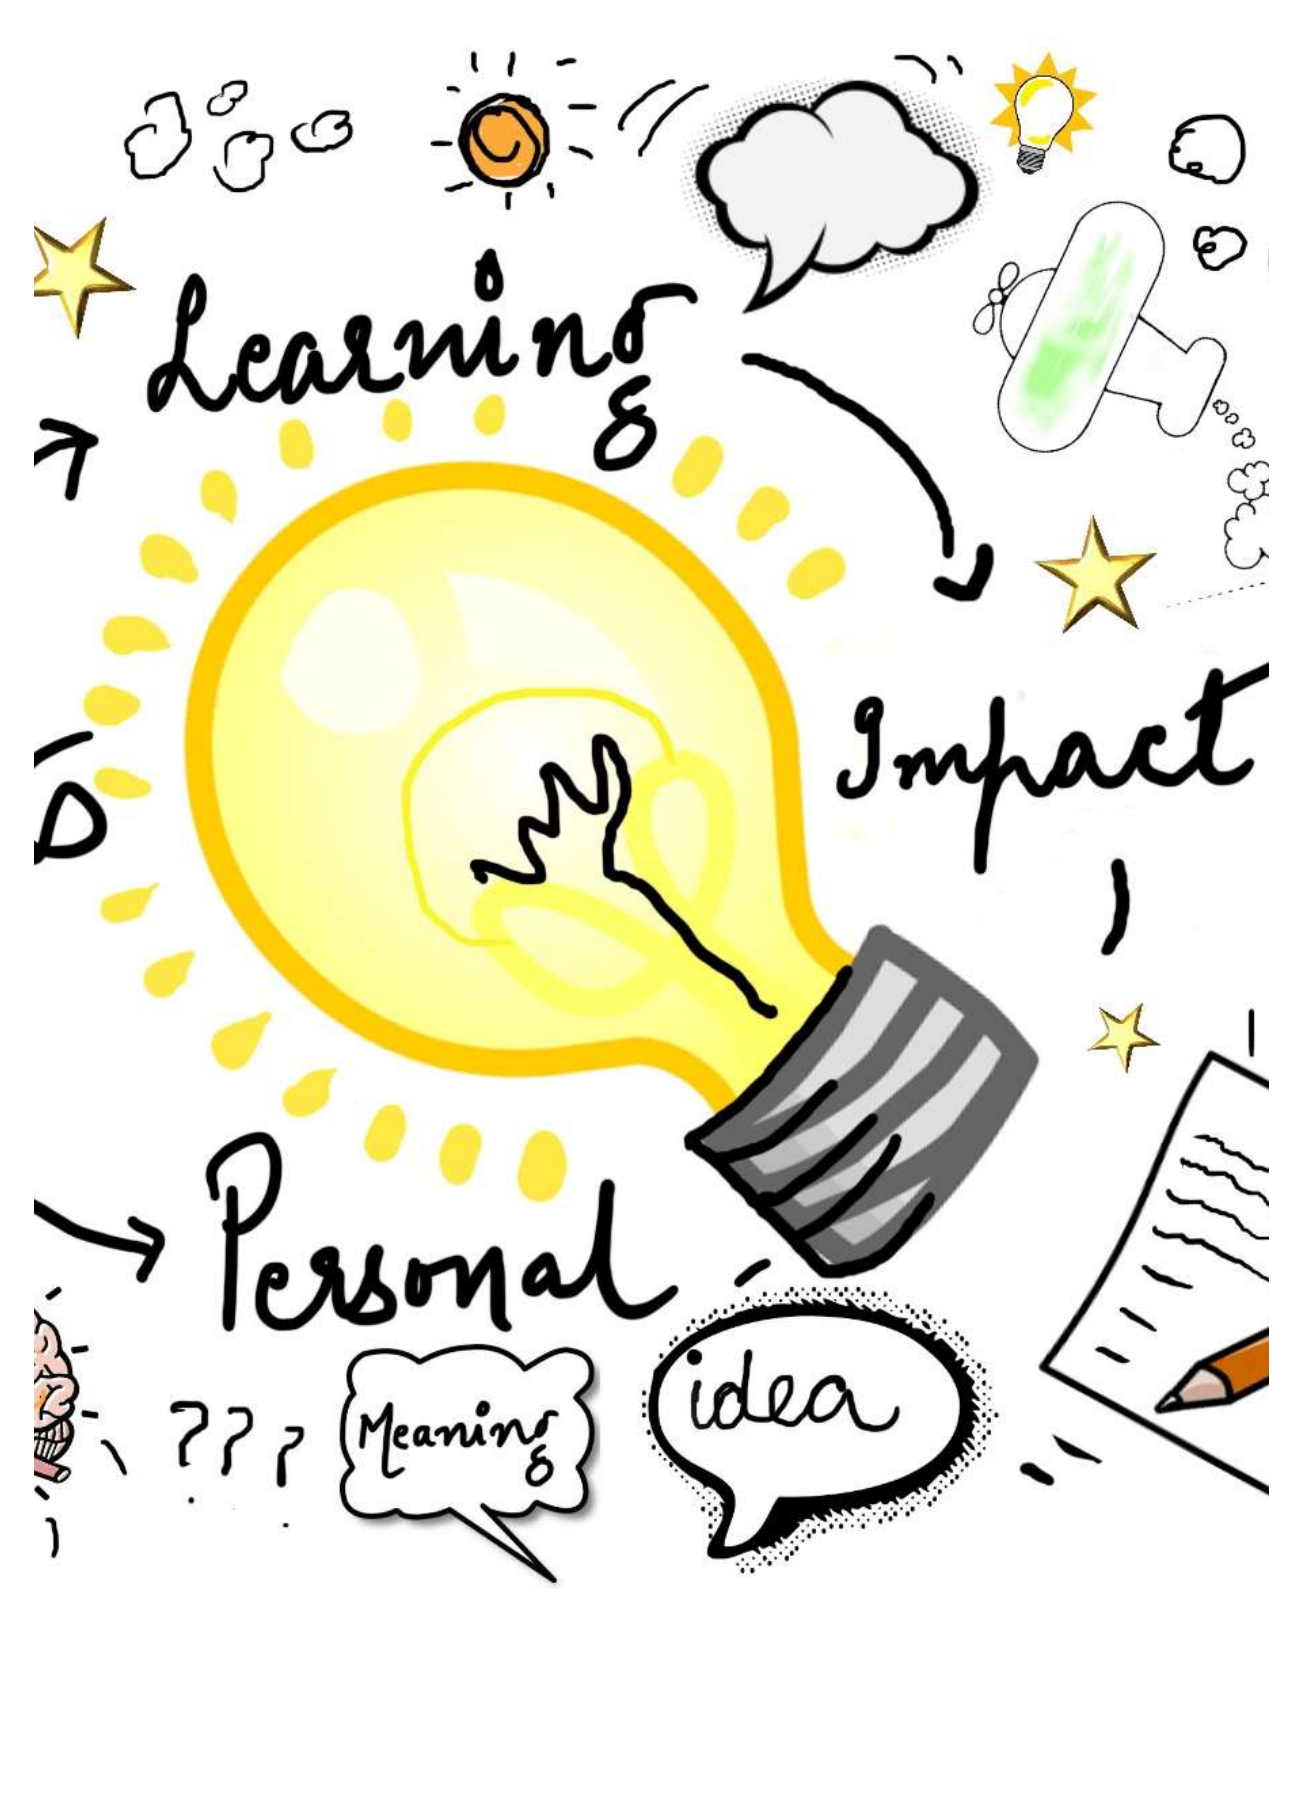 Learning
Impact
Personal
???
Meaning
idea